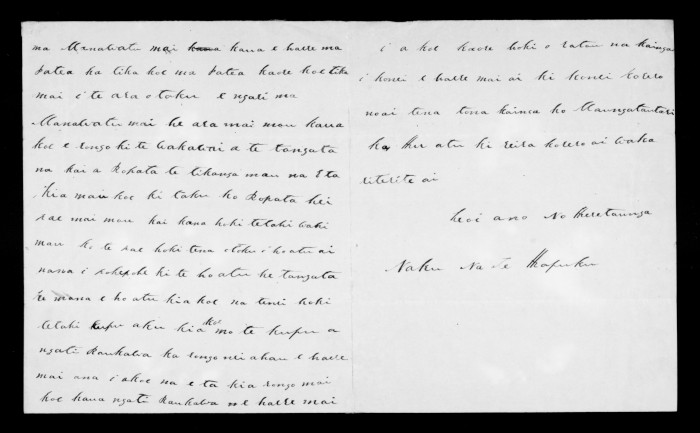 ma Manawatu mai kaua e haere ma
Patea ka tika koe ma Patea kaore koe tika
mai i te ara o toku e ngati ma
Manawatu mai he ara mai mou kaua
koe e rongo ki te wakawai a te tangata
na kai a Ropata te tikanga mau na Eta
Kia mau koe ki taku ko Ropata hei
rae mai mou kai kana hoki tetahi waki
mau ko te rae hoki tena otoku i hoatu ai
nawa i ki te hoatu he tangata
te mana e hoatu kia koe na tenei hoki
tetahi kupu aku kia koe mo te kupu a
ngati Raukawa ka rongo nei ahau e haere
mai ana i akoe na e ta kia rongo mai
koe kaua ngati Raukawa e haere mai
i a koe kaore hoki o ratou na kainga
i konei e haere mai ai ki konei korero
noai tena tona kainga ko Maungatautari
ka hu atu ki reira korero ai waka
riterite ai
heoi ano No Heretaunga
Naku Na Te Hapuku